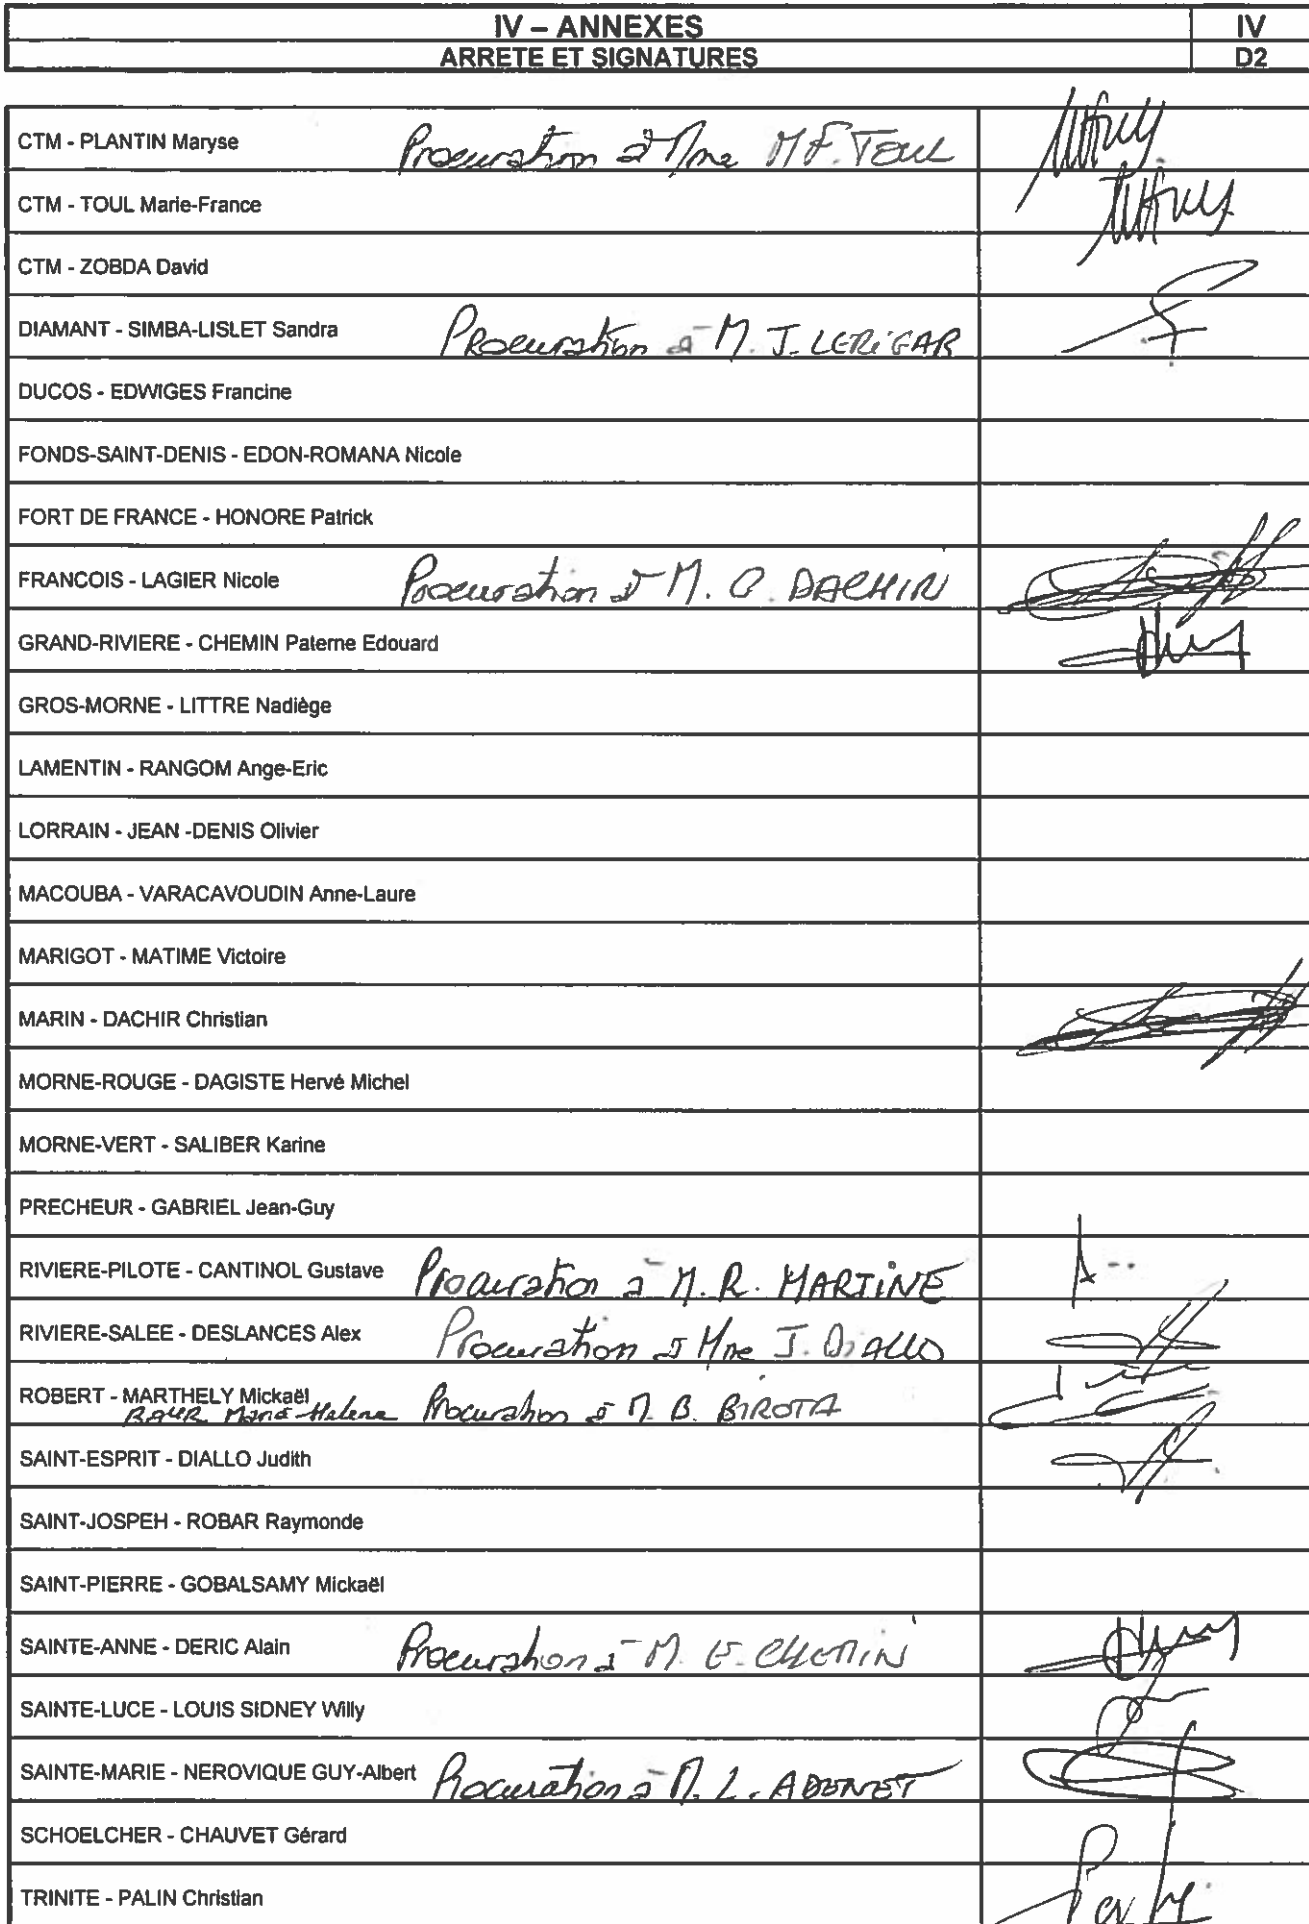 IV – ANNEXES IV
ARRETE ET SIGNATURES D2
CTM - PLANTIN Maryse Procuration à Mme M.F. TOUL
CTM - TOUL Marie-France
CTM - ZOBDA David
DIAMANT - SIMBA-LISLET Sandra Procuration à M. J. LERIGAR
DUCOS - EDWIGES Francine
FONDS-SAINT-DENIS - EDON-ROMANA Nicole
FORT DE FRANCE - HONORE Patrick
FRANCOIS - LAGIER Nicole Procuration à M. C. DACHIR
GRAND-RIVIERE - CHEMIN Paterne Edouard
GROS-MORNE - LITTRE Nadiège
LAMENTIN - RANGOM Ange-Eric
LORRAIN - JEAN -DENIS Olivier
MACOUBA - VARACAVOUDIN Anne-Laure
MARIGOT - MATIME Victoire
MARIN - DACHIR Christian
MORNE-ROUGE - DAGISTE Hervé Michel
MORNE-VERT - SALIBER Karine
PRECHEUR - GABRIEL Jean-Guy
RIVIERE-PILOTE - CANTINOL Gustave Procuration à M. R. MARTINE
RIVIERE-SALEE - DESLANCES Alex Procuration à Mme J. DIALLO
ROBERT - MARTHELY Mickaël
Marie-Helene Procuration à M. B. BIROTA
SAINT-ESPRIT - DIALLO Judith
SAINT-JOSPEH - ROBAR Raymonde
SAINT-PIERRE - GOBALSAMY Mickaël
SAINTE-ANNE - DERIC Alain Procuration à M. E. CHEMIN
SAINTE-LUCE - LOUIS SIDNEY Willy
SAINTE-MARIE - NEROVIQUE GUY-Albert Procuration à M. L. ADENET
SCHOELCHER - CHAUVET Gérard
TRINITE - PALIN Christian